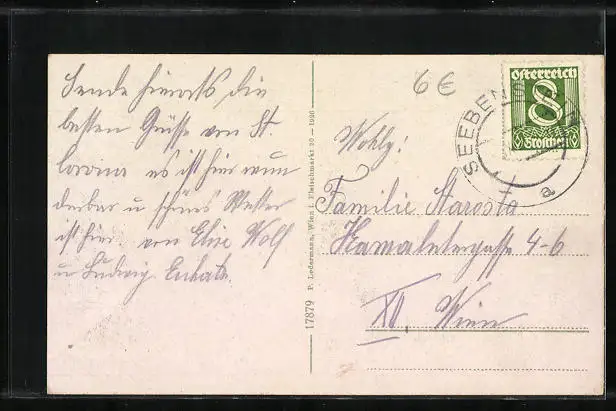 Sende hiermit die
besten Grüsse von St.
Corona es ist hier wun
derbar u schönes Wetter
ist hier. von Elise Wolf
u Ludwig
17879 P. Ledermann, Wien I. Fleischmarkt 20 — 1926
6€
Österreich
8
Groschen
SEEBEN
a
Wohlg:
Familie Starosta
Hamalstergasse 4-6
XV, Wien